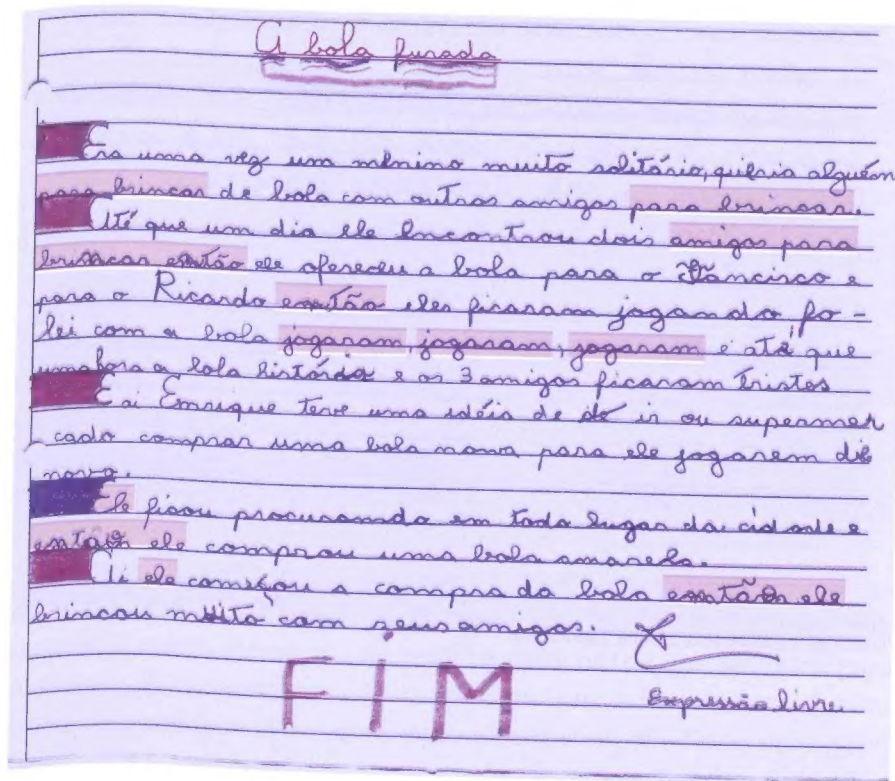 A bola furada
Era uma vez um menino muito solitário, queria alguém
para brincar de bola com outros amigos para brincar.
Até que um dia ele encontrou dois amigos para
brincar então ele ofereceu a bola para o Francisco e
para o Ricardo então eles ficaram jogando fo-
lei com a bola jogaram, jogaram, jogaram e até que
uma a bola e os 3 amigos ficaram tristes
E ai Enrique teve uma idéia de ir ou supermer
cado comprar uma bola nova para ele jogarem de
novo.
Ele ficou procurando em todo lugar da cidade e
então ele comprou uma bola amarela.
ele começou a compra da bola então ele
brincou muito com seus amigos.
FIM
Expressão livre